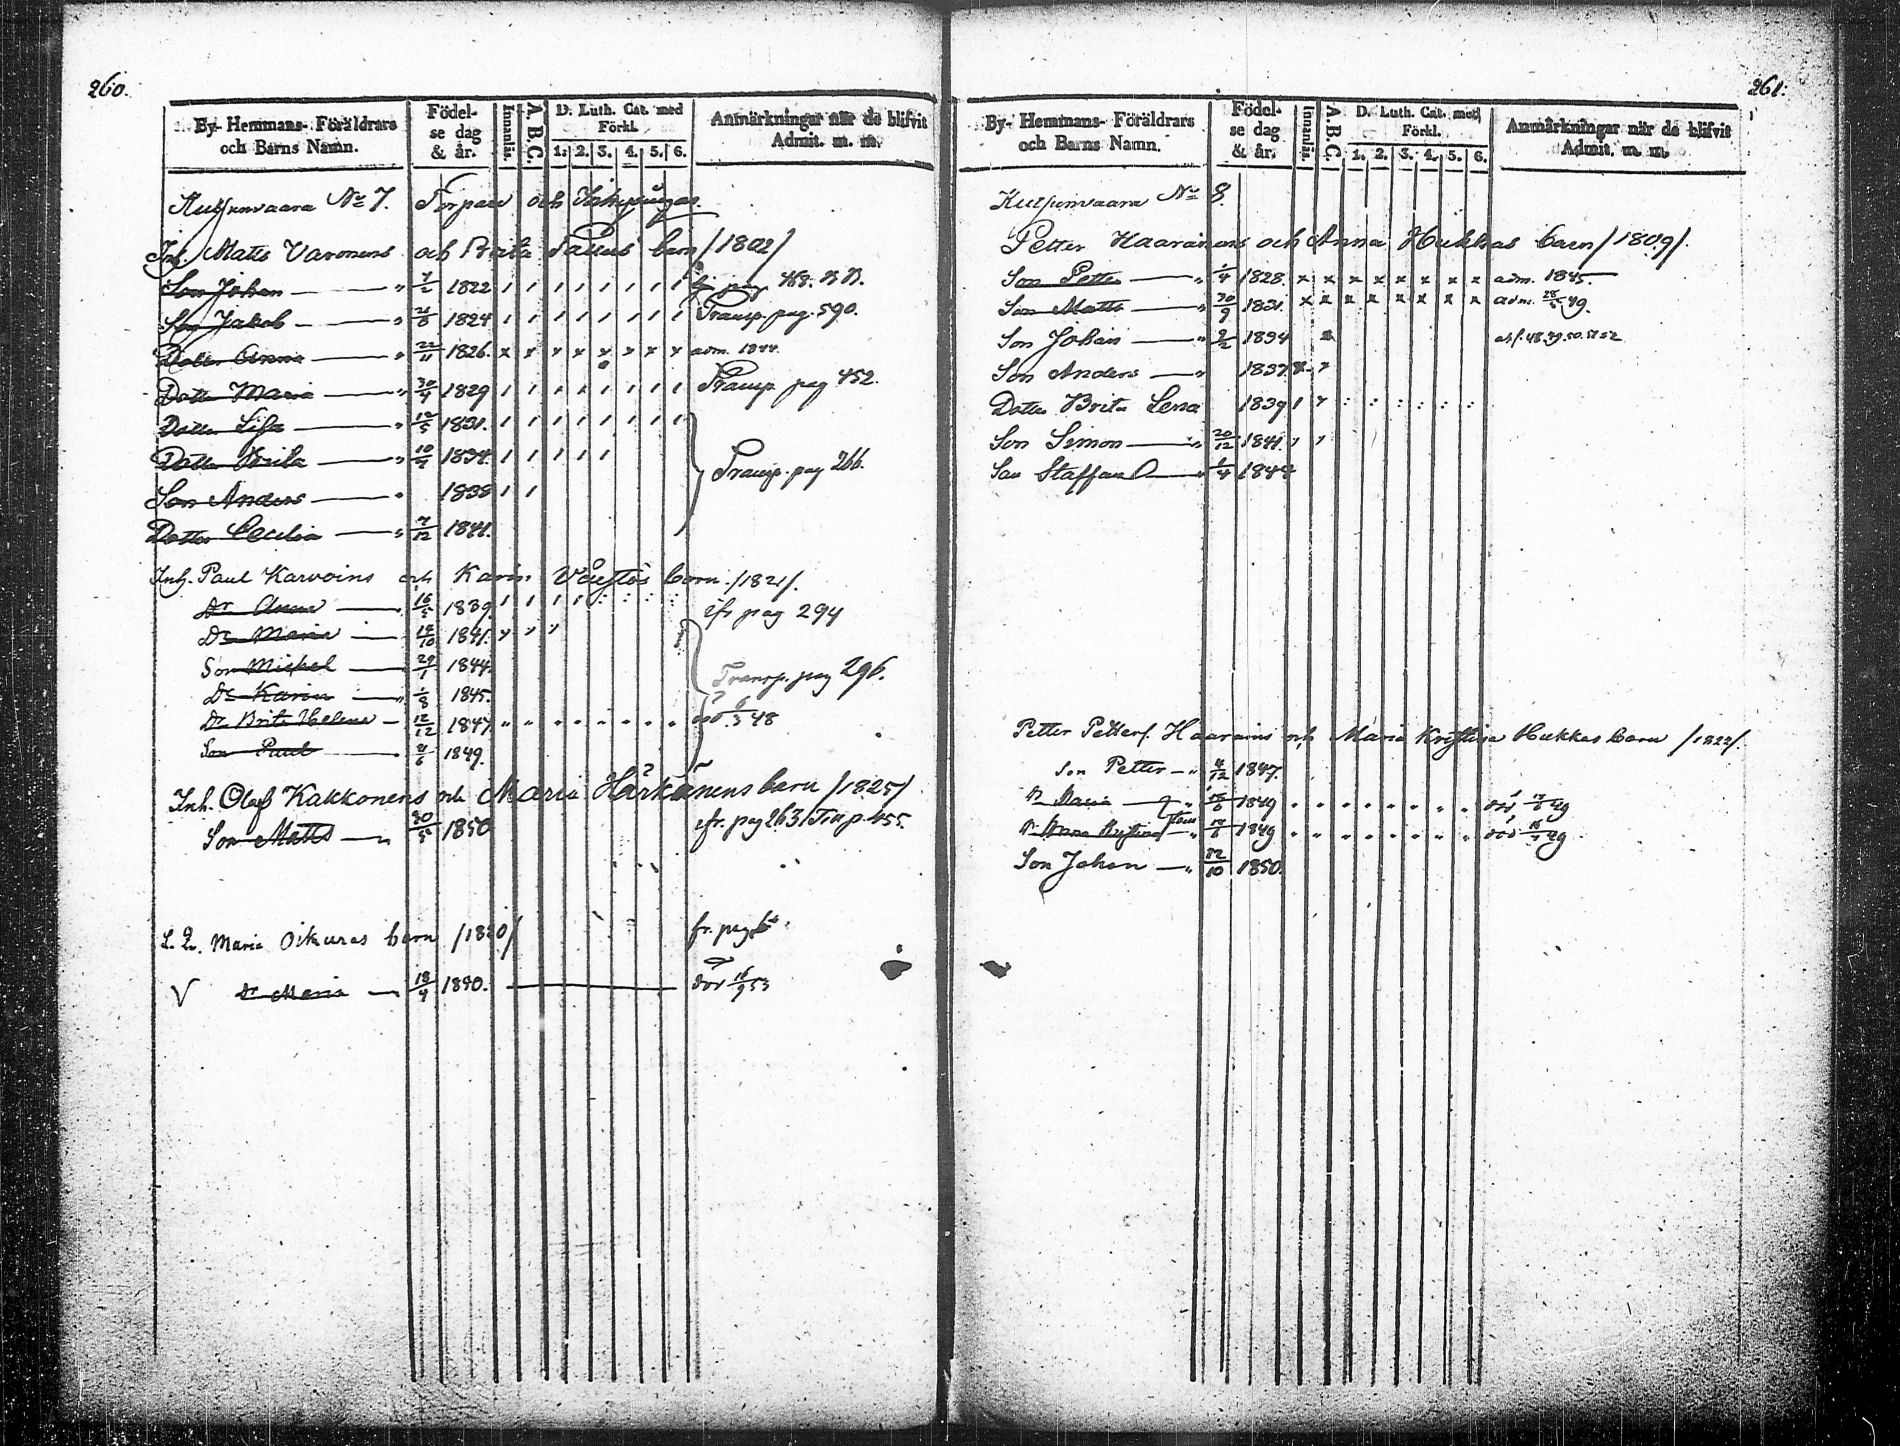 260.
By- Hemmans- Föräldrars
och Barns Namn.
Födel-
se dag
& år.
Innanläs.
A. B. C.
D. Luth. Cat. med
Förkl.
1. 2. 3. 4. 5. 6.
Anmärkningar när de blifvit
Admit. m. m.
No 7. Torpare och
Inh. Matts Varonens och Brita barn /1802/
Son Johan " 7/2 1822
Son Jakob " 21/8 1824 Transp. pag. 590.
Dotter Anna " 22/11 1826. adm. 1844.
Dotter Maria " 30/4 1829 Transp pag 452.
Dotter Lisa " 12/5 1831.
Dotter Brita " 10/4 1834. Transp. pag 266.
Son Anders " 1838
Dotter Cecilia " 7/12 1841.
Inh. Paul Karvoins och Karin barn /1821/.
Dr Anna 16/5 1839 cfr pag 294
Dr Maria 14/10 1841.
Son Michel 29/1 1844. Transp. pag 296.
Dr Karin " 1/8 1845.
Dr Brita Helena 12/12 1847. död 6/3 48
Son Paul 4/6 1849.
Inh. Olof Kakkonens och Maria Härkönens barn /1825/
Son Matts " 30/5 1850 cfr. pag 263. Trsp 455.
L. Q. Maria Oikuras barn /1820/ fr. pag
V Dr Maria 18/4 1840. död 16/9 53
261.
By- Hemmans- Föräldrars
och Barns Namn.
Födel-
se dag
& år.
Innanläs.
A. B. C.
D. Luth. Cat. med
Förkl.
1. 2. 3. 4. 5. 6.
Anmärkningar när de blifvit
Admit. m. m.
No 8.
Petter Haarainens och Anna Hukkas barn /1809/.
Son Petter " 1/4 1828. adm. 1845.
Son Matts " 30/9 1831. adm. 49.
Son Johan " 2/2 1834 abs. 48.49.50.51.52
Son Anders " 1837
Dotter Brita Lena 1839
Son Simon " 20/12 1841.
Son Staffan " 1/4 1844
Petter Petterss. Haarains och Maria Kristina Hukkas barn /1822/.
Son Petter " 4/12 1847.
Dr Maria 1849 död 49
Dr Anna Kristina 1849 död 49
Son Johan " 1850.